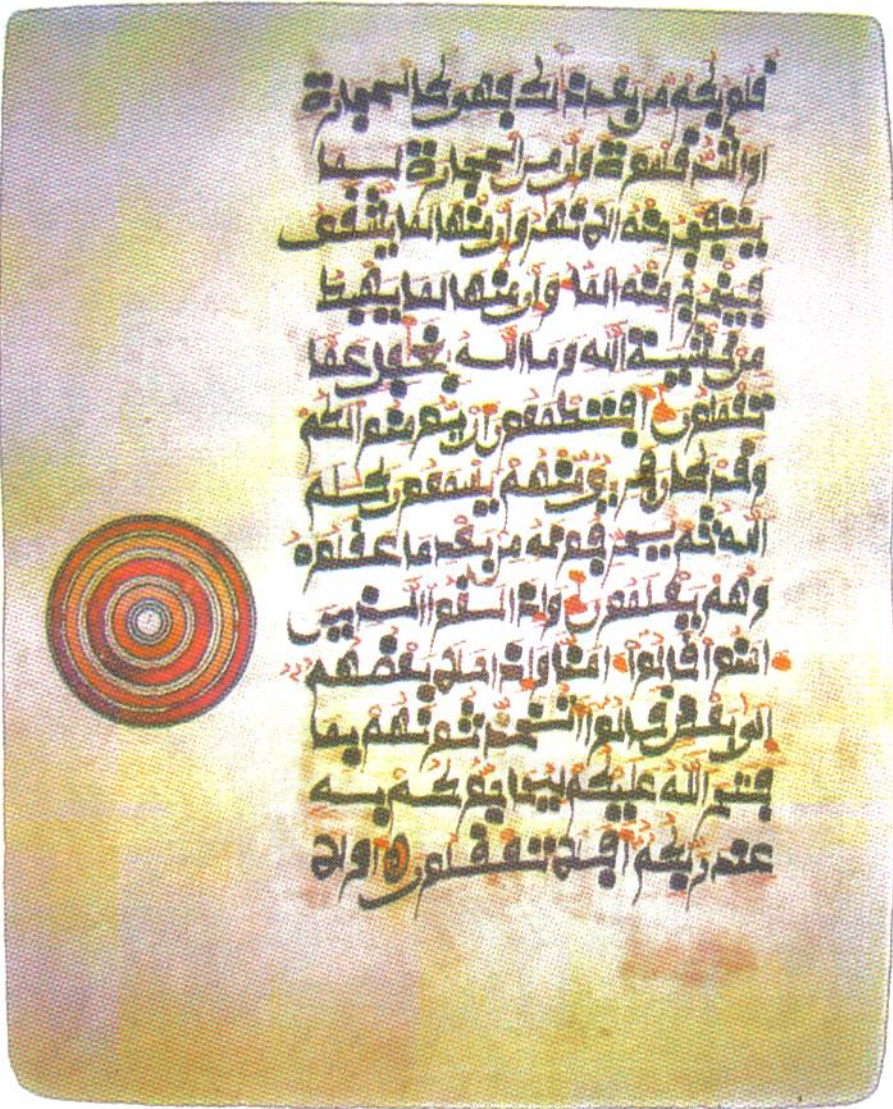 قلوبكم من بعد ذلك فهى كالحجارة
او اشد قسوة وان من الحجارة لما
يتفجر منه الانهر وان منها لما يشقق
فيخرج منه الما وان منها لما يهبط
من خشية الله وما الله بغفل عما
تعملون افتطمعون ان يومنوا لكم
وقد كان فريق منهم يسمعون كلم
الله ثم يحرفونه من بعد ما عقلوه
وهم يعلمون واذا لقوا الذين
امنوا قالوا امنا واذا خلا بعضهم
الى بعض قالوا اتحدثونهم بما
فتح الله عليكم ليحاجوكم به
عند ربكم افلا تعقلون اولا